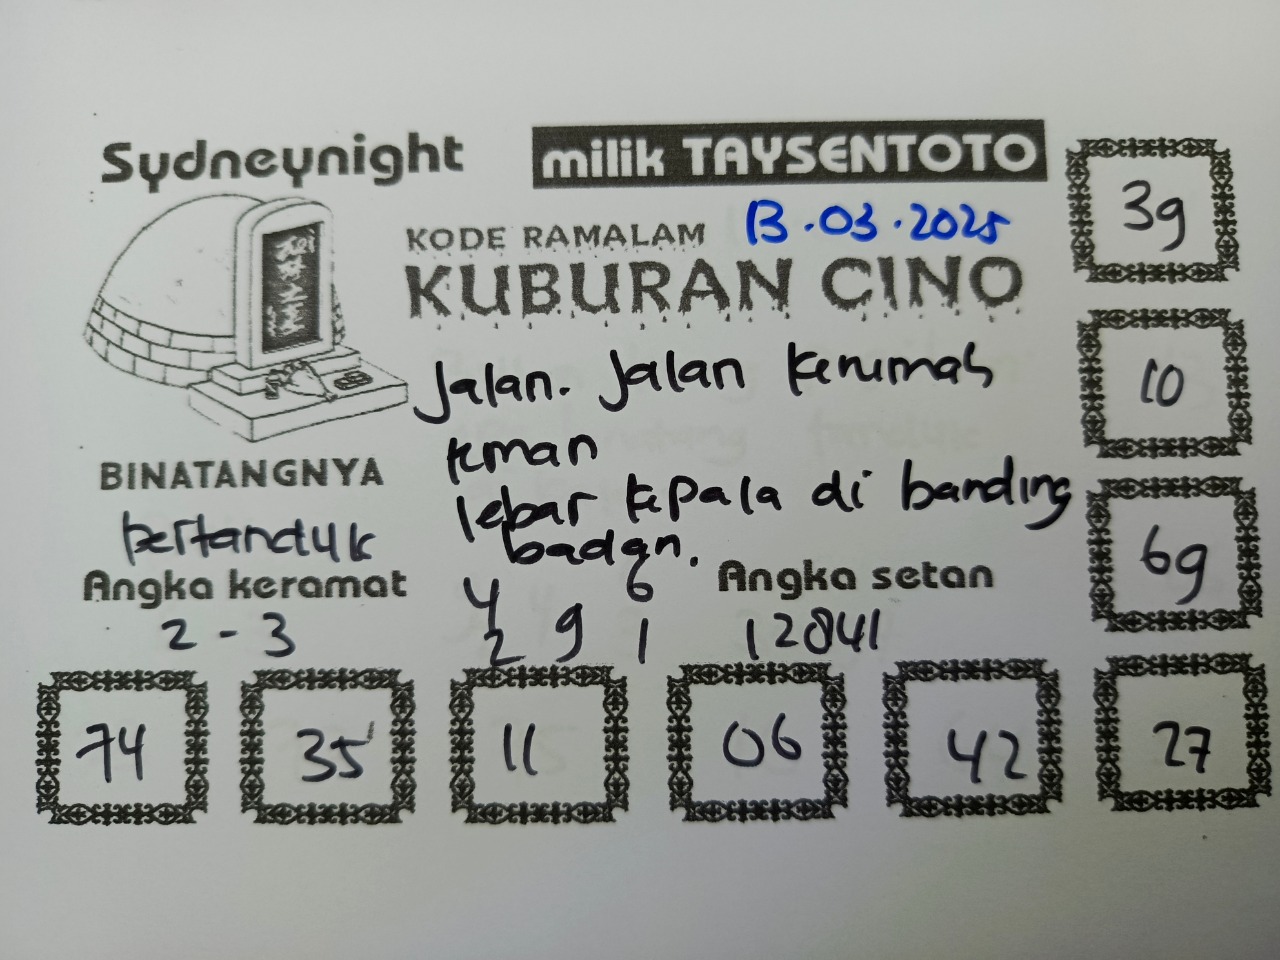 Sydneynight
milik TAYSENTOTO
KODE RAMALAM 13.03.2025
KUBURAN CINO
Jalan. Jalan kerumah
teman
lebar kepala di banding
badan.
BINATANGNYA
bertanduk
Angka keramat
2 - 3
4 6
2 9 1
Angka setan
12841
39
10
69
74 35 11 06 42 27